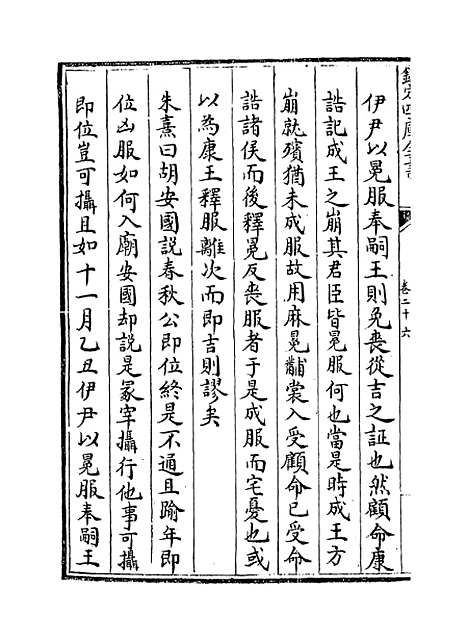 欽定四庫全書
卷二十六
伊尹以冕服奉嗣王則免喪從吉之証也然顧命康
誥記成王之崩其君臣皆冕服何也當是時成王方
崩就殯猶未成服故用麻冕黼裳入受顧命已受命
誥諸侯而後釋冕反喪服者于是成服而宅憂也或
以為康王釋服離次而即吉則謬矣
朱熹曰胡安國説春秋公即位終是不通且踰年即
位凶服如何入廟安國却説是冡宰攝行他事可攝
即位豈可攝且如十一月乙丑伊尹以冕服奉嗣王